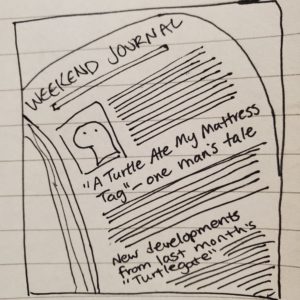 WEEKEND JOURNAL
"A Turtle Ate My Mattress
Tag" – one man's tale
New developments
from last month's
"Turtlegate"